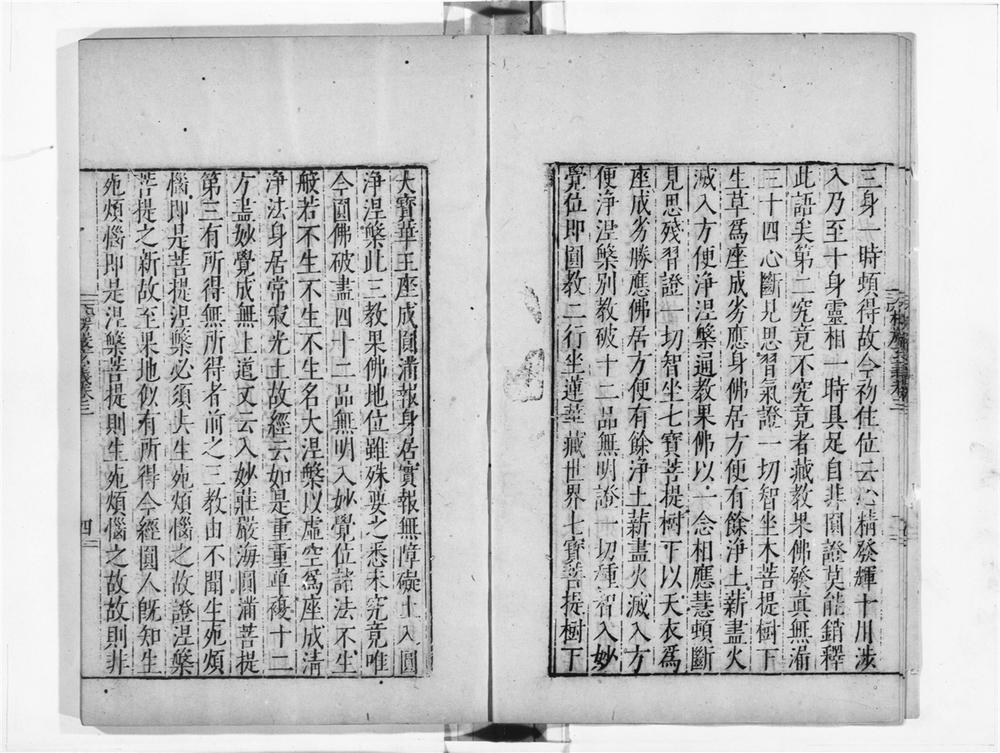 三身一時頓得故今初住位云心精發輝十用涉
入乃至十身靈相一時具足自非圓證莫能銷釋
此語矣第二究竟不究竟者藏教果佛發真無漏
三十四心斷見思習氣證一切智坐木菩提樹下
生草爲座成劣應身佛居方便有餘淨土薪盡火
滅入方便淨涅槃通教果佛以一念相應慧頓斷
見思殘習證一切智坐七寶菩提樹下以天衣爲
座成劣勝應佛居方便有餘淨土薪盡火滅入方
便淨涅槃別教破十二品無明證一切種智入妙
覺位即圓教二行坐蓮華藏世界七寶菩提樹下
大寶華王座成圓滿報身居實報無障礙土入圓
淨涅槃此三教果佛地位雖殊要之悉未究竟唯
今圓佛破盡四十二品無明入妙覺位諸法不生
般若不生不生不生名大涅槃以虛空爲座成清
淨法身居常寂光土故經云如是重重單複十二
方盡妙覺成無上道文云入妙莊嚴海圓滿菩提
第三有所得無所得者前之三教由不聞生死煩
惱即是菩提涅槃必須去生死煩惱之故證涅槃
菩提之新故至果地似有所得今經圓人既知生
死煩惱即是涅槃菩提則生死煩惱之故故則非
四